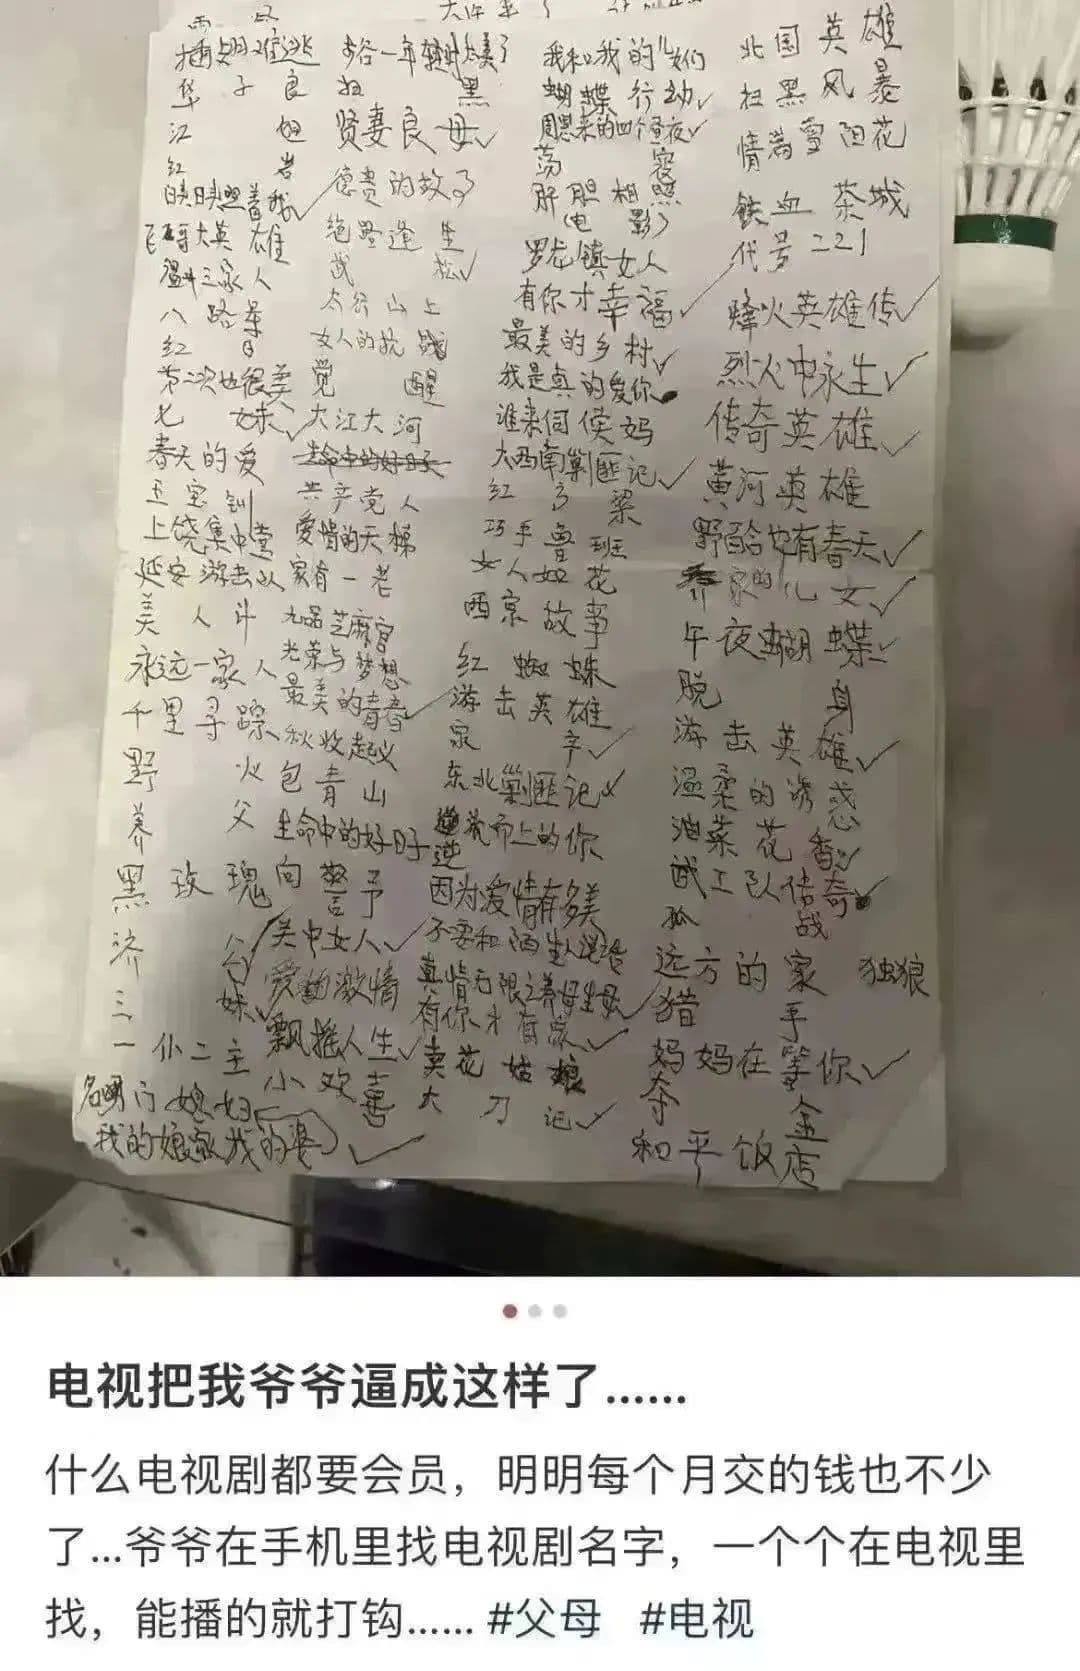 插翅难逃
华子良
江姐
红岩
映映照着我✓
飞哥大英雄
温州三家人
八路军
红日
第二次也很美
七妹✓
春天的爱
王宝钏
上饶集中营
延安游击队
美人斗
永远一家人
千里寻踪
野火
养父
黑玫瑰
济公
三妹✓
一仆二主
名门媳妇
我的娘家我的婆✓
扫黑
贤妻良母✓
德贵的故了
绝路逢生
武松✓
太行山上
女人的抗战
觉醒
大江大河
生命中的好日子
共产党人
爱情的天梯
家有一老
九品芝麻官
光荣与梦想
最美的青春✓
秋收起义
包青山
生命中的好日子
向警予
关中女人✓
爱的激情
飘摇人生✓
小欢喜
我和我的儿女们
蝴蝶行动✓
周恩来的四个昼夜✓
荡寇
肝胆相照
电影了
罗龙镇女人
有你才幸福✓
最美的乡村✓
我是真的爱你
谁来伺侯妈
大西南剿匪记✓
红高粱
巧手鲁班
女人如花
西京故事
红蜘蛛
游击英雄
京字✓
东北剿匪记✓
逆光而上的你
因为爱情有多美
不要和陌生人说话
真情无限之养母生母✓
有你才有家✓
卖花姑娘
大刀记✓
北国英雄
扫黑风暴
情满雪阳花
铁血茶城
代号221
烽火英雄传✓
烈火中永生✓
传奇英雄✓
黄河英雄
野百合也有春天✓
养家的儿女✓
午夜蝴蝶✓
脱身
游击英雄✓
温柔的诱惑
油菜花香✓
武工队传奇
孤战
远方的家 独狼
猎手
妈妈在等你✓
夺金
和平饭店
电视把我爷爷逼成这样了……
什么电视剧都要会员，明明每个月交的钱也不少
了...爷爷在手机里找电视剧名字，一个个在电视里
找，能播的就打钩…… #父母 #电视